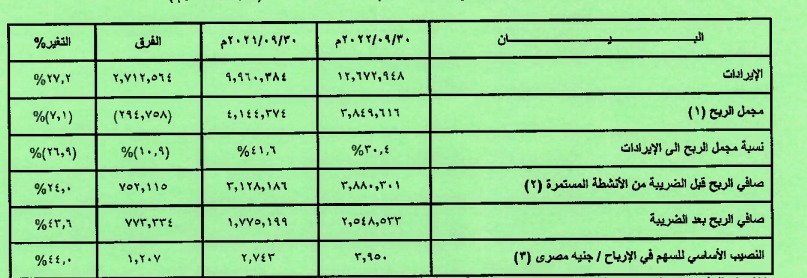 البيــــــــــــــان ٢٠٢٢/٠٩/٣٠م ٢٠٢١/٠٩/٣٠م الفرق التغير%
الإيرادات ١٢,٦٧٢,٩٤٨ ٩,٩٦٠,٣٨٤ ٢,٧١٢,٥٦٤ ٢٧,٢%
مجمل الربح (١) ٣,٨٤٩,٦١٦ ٤,١٤٤,٣٧٤ (٢٩٤,٧٥٨) (٧,١)%
نسبة مجمل الربح الى الإيرادات ٣٠,٤% ٤١,٦% (١٠,٩)% (٢٦,٩)%
صافي الربح قبل الضريبة من الأنشطة المستمرة (٢) ٣,٨٨٠,٣٠١ ٣,١٢٨,١٨٦ ٧٥٢,١١٥ ٢٤,٠%
صافي الربح بعد الضريبة ٢,٥٤٨,٥٣٣ ١,٧٧٥,١٩٩ ٧٧٣,٣٣٤ ٤٣,٦%
النصيب الأساسي للسهم في الإرباح / جنيه مصرى (٣) ٣,٩٥٠ ٢,٧٤٣ ١,٢٠٧ ٤٤,٠%